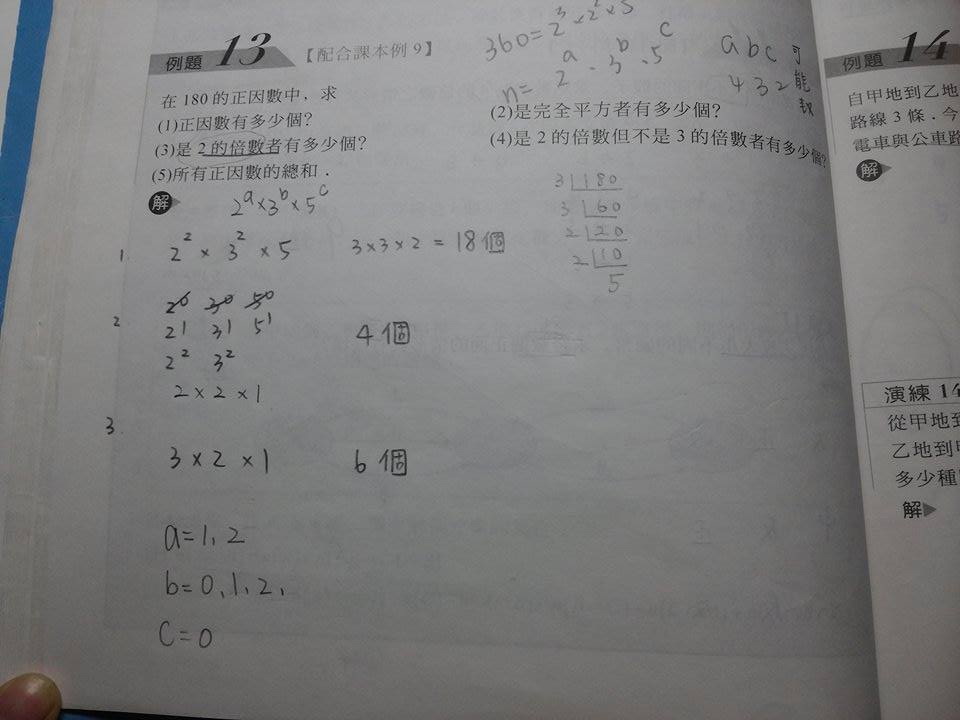 例題 13 【配合課本例 9】
在 180 的正因數中﹐求
(1)正因數有多少個?
(2)是完全平方者有多少個?
(3)是 2 的倍數者有多少個?
(4)是 2 的倍數但不是 3 的倍數者有多少個?
(5)所有正因數的總和﹒
解
360=2³×2²×5
n= 2ᵃ·3ᵇ·5ᶜ
a b c 可能數
4 3 2
2ᵃ×3ᵇ×5ᶜ
1. 2²×3²×5 3×3×2=18個
3 180
3 60
2 20
2 10
5
2. 2⁰ 3⁰ 5⁰
2¹ 3¹ 5¹
2² 3²
4個
2×2×1
3.
3×2×1 6個
a=1、2
b=0、1、2、
c=0
例題 14
自甲地到乙地
路線 3 條﹒今
電車與公車路
解
演練 14
從甲地到
乙地到甲
多少種
解